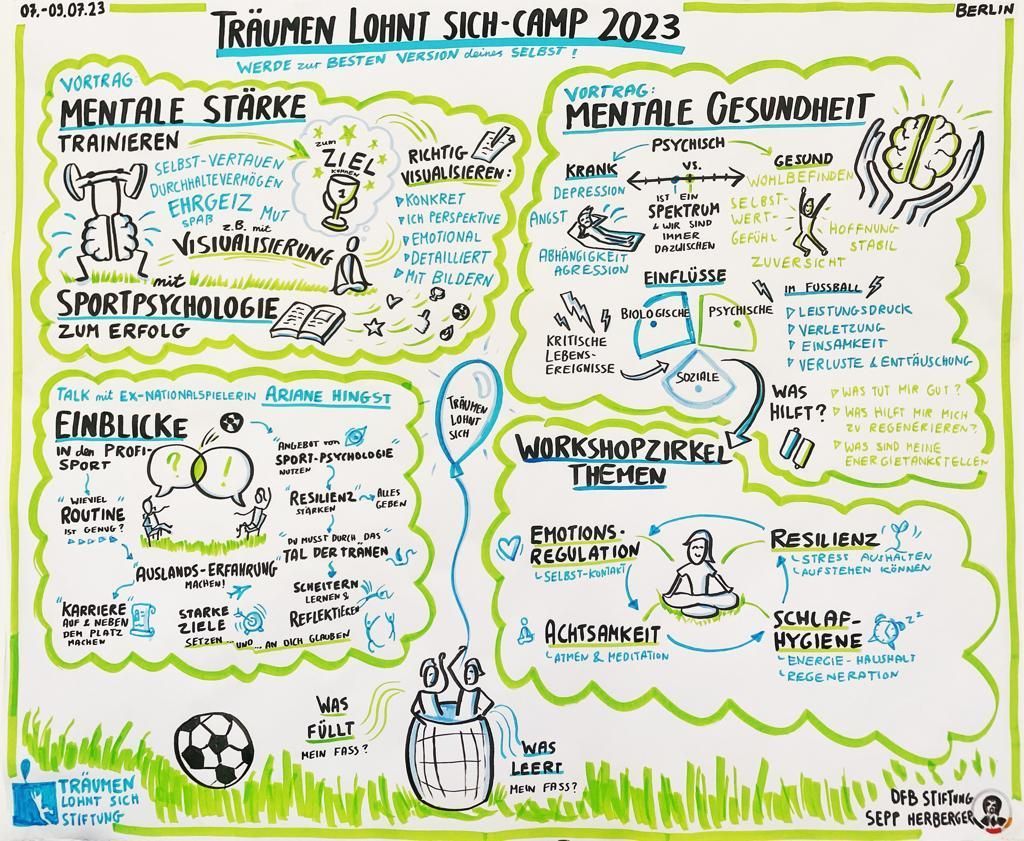 07.-09.07.23
TRÄUMEN LOHNT SICH-CAMP 2023
BERLIN
WERDE zur BESTEN VERSION deines SELBST!
VORTRAG:
MENTALE STÄRKE
TRAINIEREN
SELBST-VERTAUEN
DURCHHALTEVERMÖGEN
EHRGEIZ MUT
SPAß
z.B. mit
VISIUALISIERUNG
zum
ZIEL
KOMMEN
1
RICHTIG
VISUALISIEREN:
KONKRET
ICH PERSPEKTIVE
EMOTIONAL
DETAILLIERT
MIT BILDERN
mit
SPORTPSYCHOLOGIE
ZUM ERFOLG
VORTRAG:
MENTALE GESUNDHEIT
PSYCHISCH
KRANK
VS.
GESUND
DEPRESSION
WOHLBEFINDEN
ANGST
IST EIN
SPEKTRUM
& WIR SIND
IMMER
DAZWISCHEN
SELBST-
WERT-
GEFÜHL
HOFFNUNG
STABIL
ABHÄNGIGKEIT
AGRESSION
ZUVERSICHT
EINFLÜSSE
BIOLOGISCHE
PSYCHISCHE
SOZIALE
KRITISCHE
LEBENS-
EREIGNISSE
IM FUSSBALL
LEISTUNGSDRUCK
VERLETZUNG
EINSAMKEIT
VERLUSTE & ENTTÄUSCHUNG
WAS
HILFT?
WAS TUT MIR GUT?
WAS HILFT MIR MICH
ZU REGENERIEREN?
WAS SIND MEINE
ENERGIETANKSTELLEN
TALK mit EX-NATIONALSPIELERIN ARIANE HINGST
EINBLICKE
IN den PROFI-
SPORT
?
!
"WIEVIEL
ROUTINE
IST GENUG?"
ANGEBOT von
SPORT-PSYCHOLOGIE
NUTZEN
"RESILIENZ"
STÄRKEN
ALLES
GEBEN
DU MUSST DURCH "DAS
TAL DER TRÄNEN"
"AUSLANDS-ERFAHRUNG
MACHEN!
SCHEITERN
LERNEN &
REFLEKTIEREN
"KARRIERE
AUF & NEBEN
DEM PLATZ
MACHEN
STARKE
ZIELE
SETZEN ...UND... AN DICH GLAUBEN
TRÄUMEN
LOHNT
SICH
WORKSHOPZIRKEL
THEMEN
EMOTIONS-
REGULATION
SELBST-KONTAKT
RESILIENZ
STRESS AUSHALTEN
AUFSTEHEN KÖNNEN
ACHTSAMKEIT
ATMEN & MEDITATION
SCHLAF-
HYGIENE
ZZZ
ENERGIE-HAUSHALT
REGENERATION
WAS
FÜLLT
MEIN FASS?
WAS
LEERT
MEIN FASS?
TRÄUMEN
LOHNT SICH
STIFTUNG
DFB STIFTUNG
SEPP HERBERGER